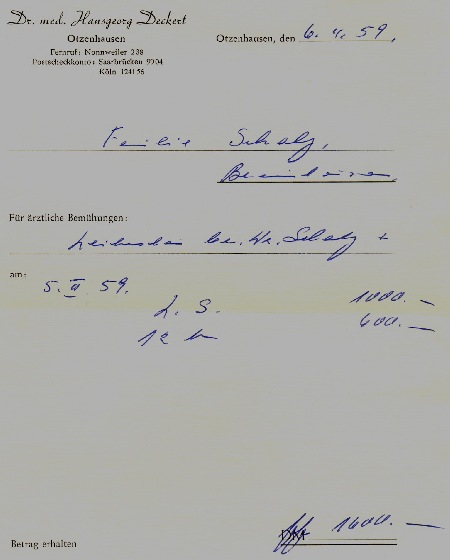 Dr. med. Hansgeorg Deckert
Otzenhausen
Fernruf: Nonnweiler 238
Postscheckkonto: Saarbrücken 9904
Köln 124156
Otzenhausen, den 6. 4. 59.
Familie Scholz,
Für ärztliche Bemühungen:
Leichenschau bei Hr. Scholz +
am:
5. II 59.
L. S. 1000.—
12 km 600.—
1600.—
Betrag erhalten